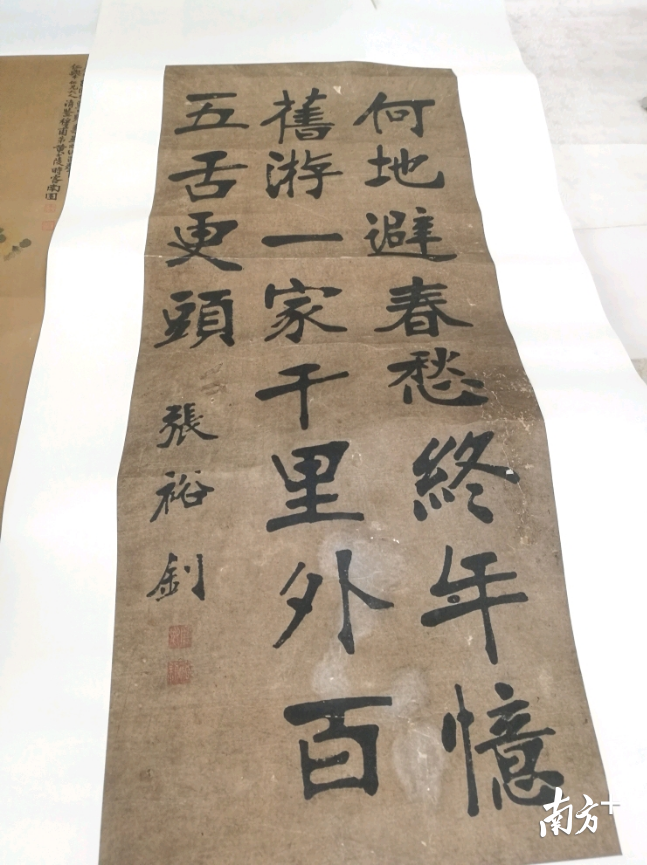 何地避春愁終年憶
舊游一家千里外百
五舌更頭
張裕釗
南方+